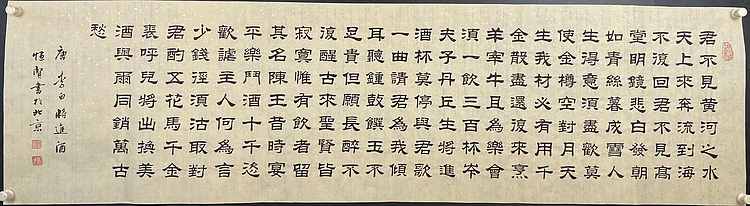 君不見黃河之水
天上來奔流到海
不復回君不見高
堂明鏡悲白發朝
如青絲暮成雪人
生得意須盡歡莫
使金樽空對月天
生我材必有用千
金散盡還復來烹
羊宰牛且為樂會
須一飲三百杯岑
夫子丹丘生將進
酒杯莫停與君歌
一曲請君為我傾
耳聽鐘鼓饌玉不
足貴但願長醉不
復醒古來聖賢皆
寂寞惟有飲者留
其名陳王昔時宴
平樂鬥酒十千恣
歡謔主人何為言
少錢徑須沽取對
君酌五花馬千金
裘呼兒將出換美
酒與爾同銷萬古
愁
唐李白將進酒
書於北京